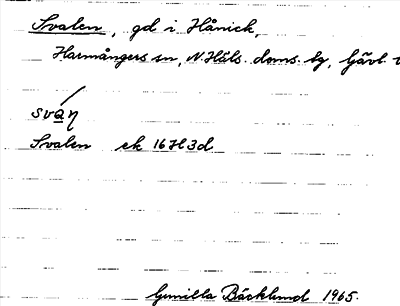 Svalen, gd i Hånick,
Harmångers sn, N. Häls. doms. tg, Gävl.
svaŋ
Svalen ek 16H3d
Gunilla Bäcklund 1965.